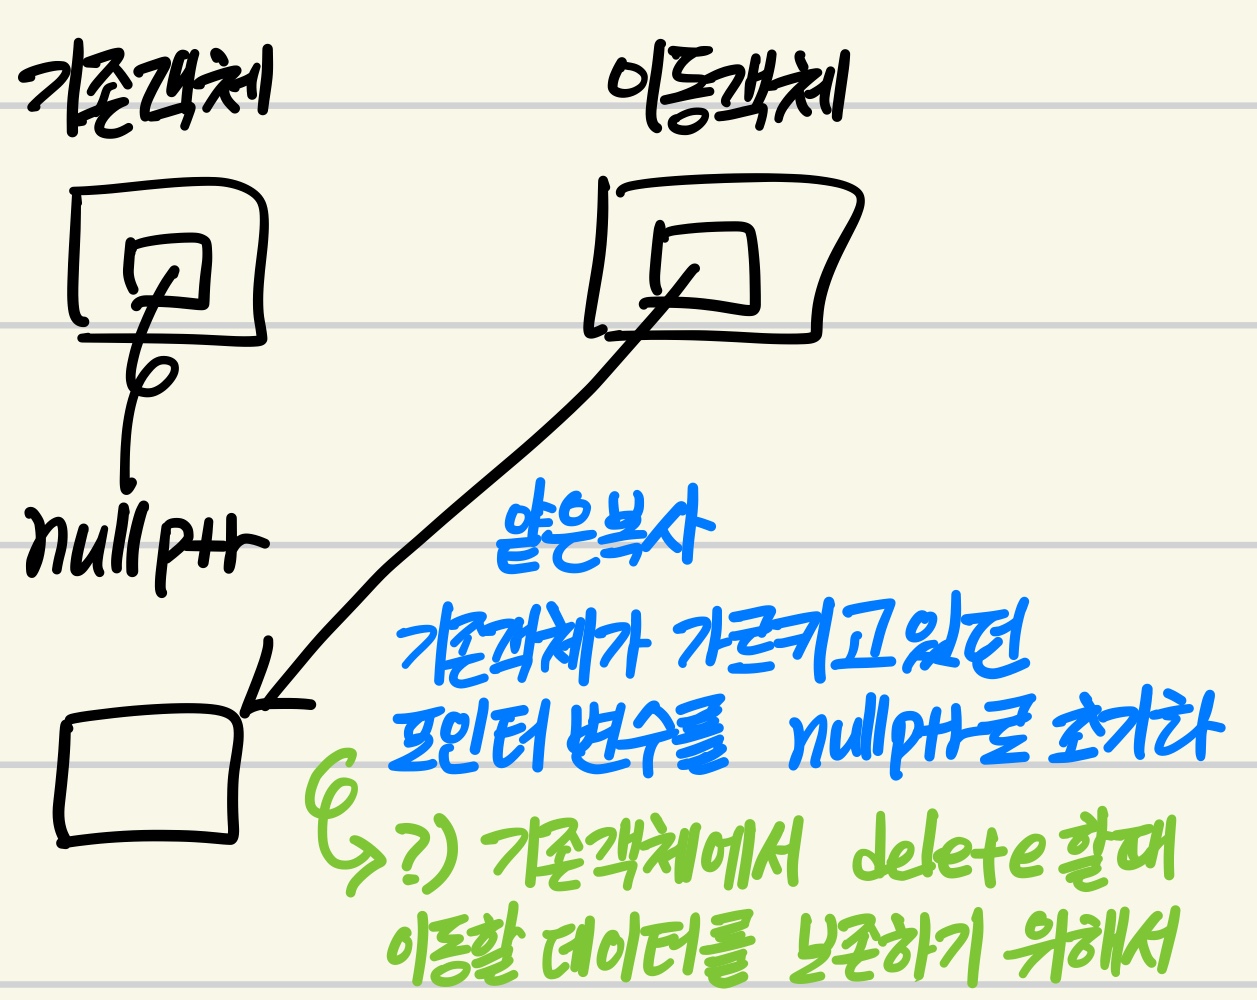 기존객체 이동객체
nullptr
얕은복사
기존객체가 가르키고있던
포인터 변수를 nullptr로 초기화
?) 기존객체에서 delete할때
이동할 데이터를 보존하기 위해서